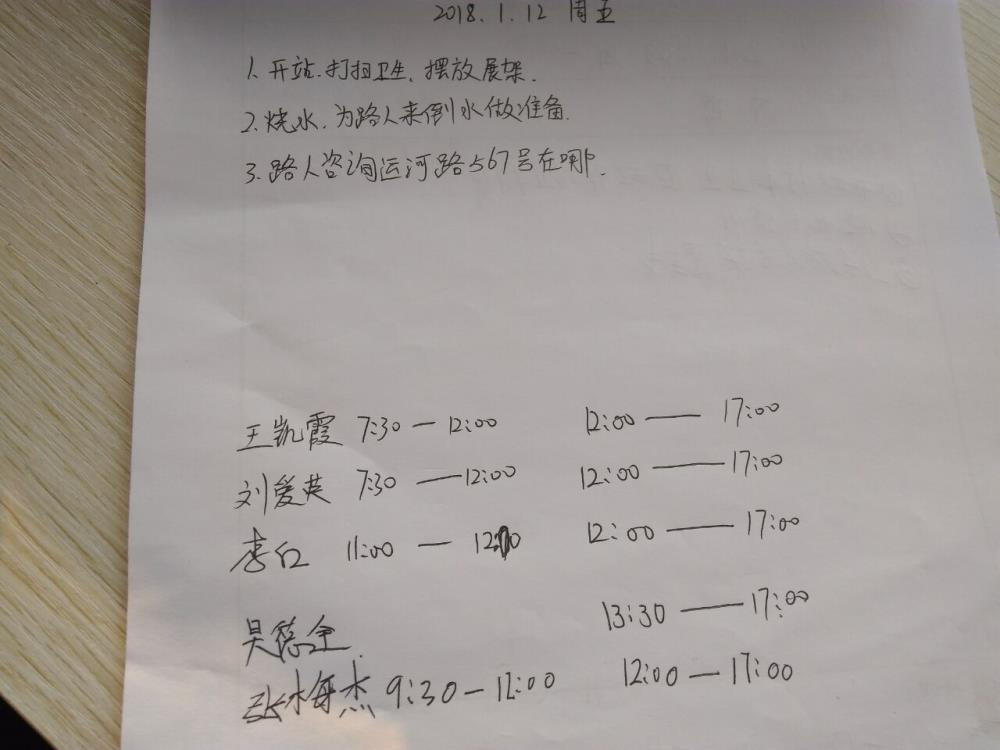 2018.1.12 周五
1. 开站.打扫卫生，摆放展架.
2. 烧水，为路人来倒水做准备.
3. 路人咨询运河路567号在哪.
王凯霞 7:30 — 12:00 12:00 — 17:00
刘爱英 7:30 — 12:00 12:00 — 17:00
李红 11:00 — 12:00 12:00 — 17:00
吴德全. 13:30 — 17:00
张梅杰 9:30 — 12:00 12:00 — 17:00